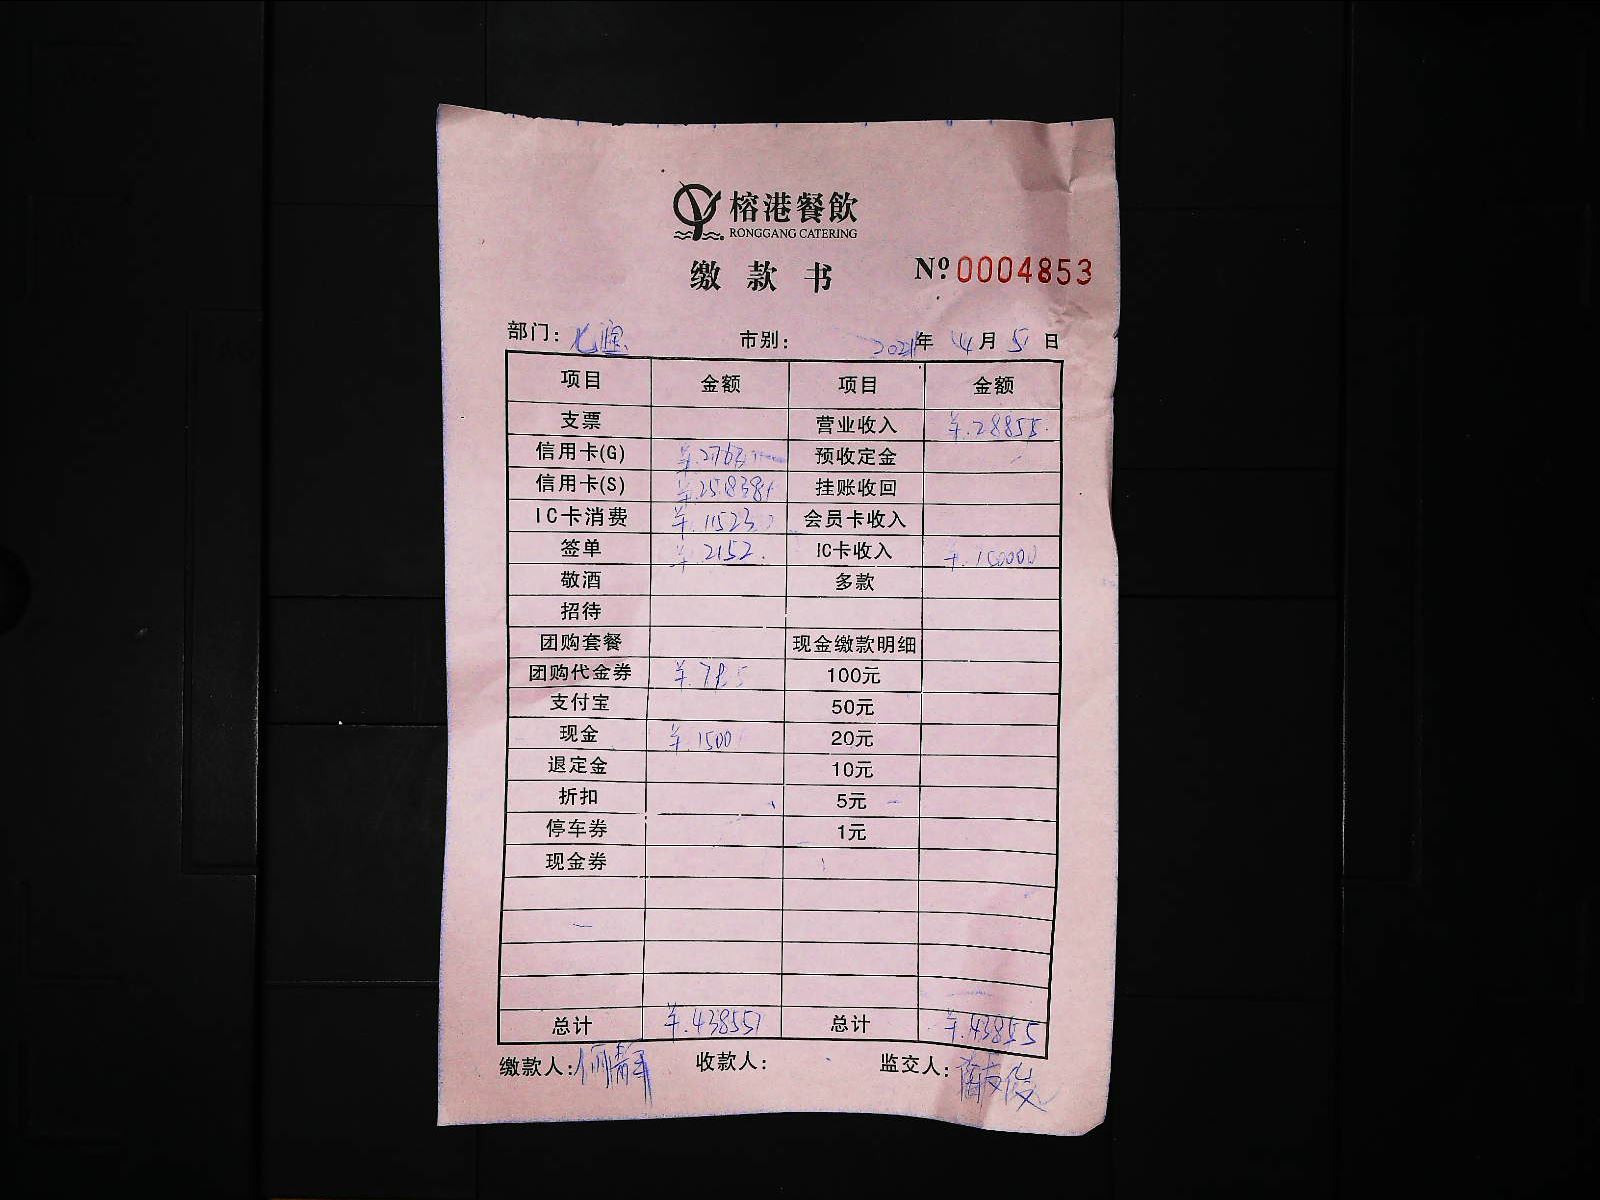 榕港餐飲
RONGGANG CATERING
缴款书 Nº 0004853
部门: 市别: 2021年 4月 5日
项目 金额 项目 金额
支票 营业收入 ¥.28855.
信用卡(G) 预收定金
信用卡(S) 挂账收回
IC卡消费 ¥.11523 会员卡收入
签单 ¥.2152. IC卡收入
敬酒 多款
招待
团购套餐 现金缴款明细
团购代金券 100元
支付宝 50元
现金 ¥.1500 20元
退定金 10元
折扣 5元
停车券 1元
现金券
总计 ¥.43855 总计 ¥.43855
缴款人: 收款人: 监交人: